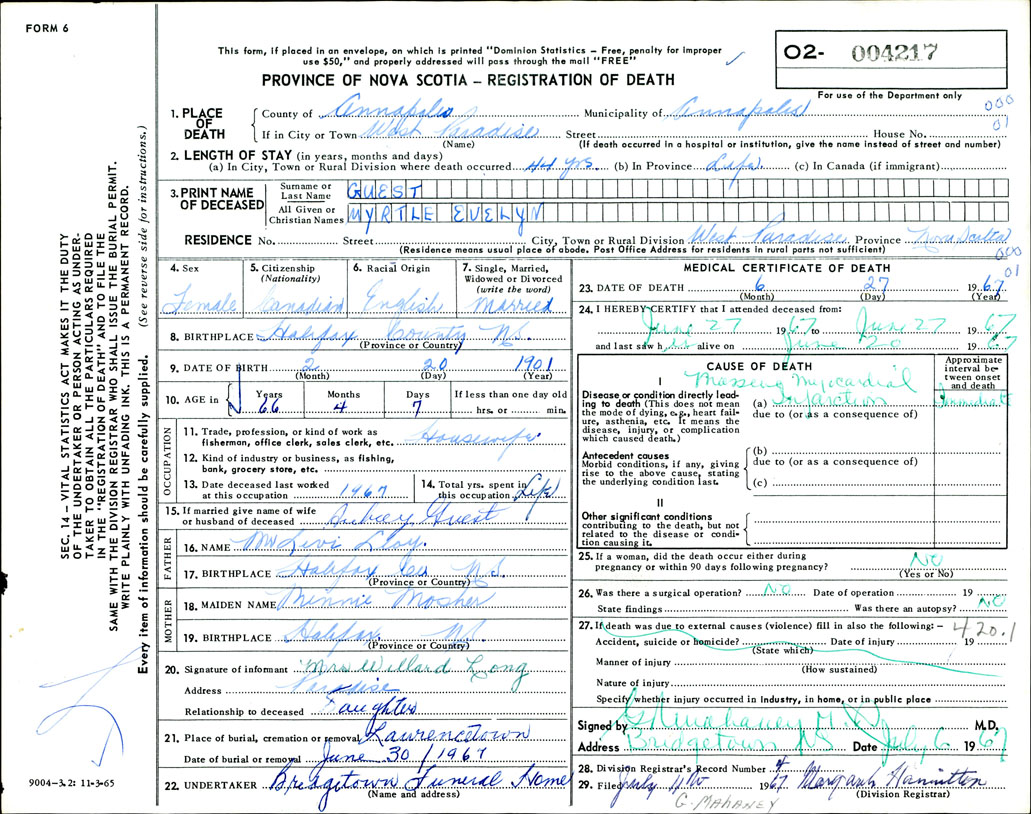 FORM 6
This form, if placed in an envelope, on which is printed "Dominion Statistics – Free, penalty for improper
use $50," and properly addressed will pass through the mail "FREE"
PROVINCE OF NOVA SCOTIA – REGISTRATION OF DEATH
O2- 004217
For use of the Department only
000
01
1. PLACE OF DEATH
County of Annapolis Municipality of Annapolis
If in City or Town West Paradise Street House No.
(Name) (If death occurred in a hospital or institution, give the name instead of street and number)
2. LENGTH OF STAY (in years, months and days)
(a) In City, Town or Rural Division where death occurred 44 yrs. (b) In Province Life (c) In Canada (if immigrant)
3. PRINT NAME OF DECEASED
Surname or Last Name GUEST
All Given or Christian Names MYRTLE EVELYN
RESIDENCE No. Street City, Town or Rural Division West Paradise Province Nova Scotia
(Residence means usual place of abode. Post Office Address for residents in rural parts not sufficient)
000
01
4. Sex Female
5. Citizenship (Nationality) Canadian
6. Racial Origin English
7. Single, Married, Widowed or Divorced (write the word) Married
8. BIRTHPLACE Halifax County N.S.
(Province or Country)
9. DATE OF BIRTH 2 20 1901
(Month) (Day) (Year)
10. AGE in Years Months Days If less than one day old
66 4 7 hrs. or min.
OCCUPATION
11. Trade, profession, or kind of work as
fisherman, office clerk, sales clerk, etc. Housewife
12. Kind of industry or business, as fishing,
bank, grocery store, etc.
13. Date deceased last worked
at this occupation 1967
14. Total yrs. spent in
this occupation Life
15. If married give name of wife
or husband of deceased Aubrey Guest
FATHER
16. NAME Mr Levi Lloy.
17. BIRTHPLACE Halifax Co N.S.
(Province or Country)
MOTHER
18. MAIDEN NAME Minnie Mosher
19. BIRTHPLACE Halifax N.S.
(Province or Country)
20. Signature of informant Mrs Willard Long
Address Paradise
Relationship to deceased Daughter
21. Place of burial, cremation or removal Lawrencetown
Date of burial or removal June 30/1967
22. UNDERTAKER Bridgetown Funeral Home
(Name and address)
MEDICAL CERTIFICATE OF DEATH
23. DATE OF DEATH 6 27 1967
(Month) (Day) (Year)
24. I HEREBY CERTIFY that I attended deceased from:
June 27 1967 to June 27 1967
and last saw h er alive on June 20 1967
CAUSE OF DEATH
Approximate interval between onset and death
I
Disease or condition directly leading to death (This does not mean
the mode of dying, e.g., heart failure, asthenia, etc. It means the
disease, injury, or complication
which caused death.)
(a) Massive Myocardial Infarction Immediate
due to (or as a consequence of)
Antecedent causes
Morbid conditions, if any, giving
rise to the above cause, stating
the underlying condition last.
(b)
due to (or as a consequence of)
(c)
II
Other significant conditions
contributing to the death, but not
related to the disease or condition causing it.
25. If a woman, did the death occur either during
pregnancy or within 90 days following pregnancy? NO
(Yes or No)
26. Was there a surgical operation? NO Date of operation 19
State findings Was there an autopsy? NO
27. If death was due to external causes (violence) fill in also the following: – 420.1
Accident, suicide or homicide? Date of injury 19
(State which)
Manner of injury
(How sustained)
Nature of injury
Specify whether injury occurred in industry, in home, or in public place
Signed by G Mahaney M.D. M.D.
Address Bridgetown NS Date July 6 1967
28. Division Registrar's Record Number 4
29. Filed July 11th 1967 Margaret Hamilton
(Division Registrar)
G. MAHANEY
SEC. 14 – VITAL STATISTICS ACT MAKES IT THE DUTY
OF THE UNDERTAKER OR PERSON ACTING AS UNDER-
TAKER TO OBTAIN ALL THE PARTICULARS REQUIRED
IN THE "REGISTRATION OF DEATH" AND TO FILE THE
SAME WITH THE DIVISION REGISTRAR WHO SHALL ISSUE THE BURIAL PERMIT.
WRITE PLAINLY WITH UNFADING INK. THIS IS A PERMANENT RECORD.
Every item of information should be carefully supplied. (See reverse side for instructions.)
9004–3.2: 11-3-65